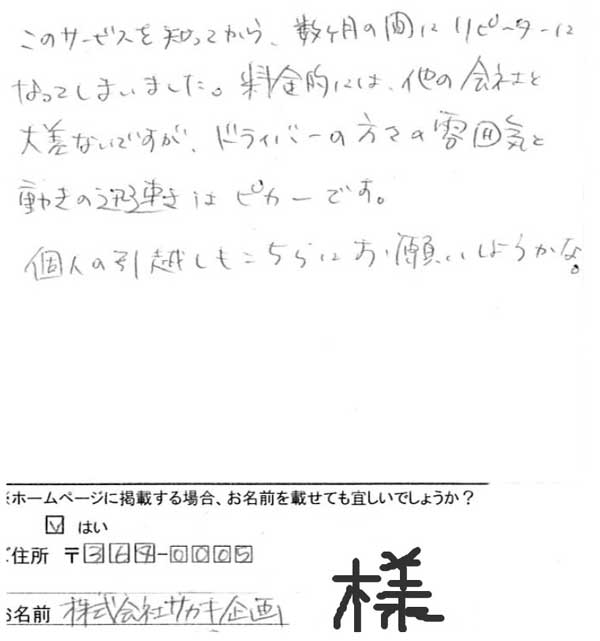 このサービスを知ってから、数ヶ月の間にリピーターに
なってしまいました。料金的には、他の会社と
大差ないですが、ドライバーの方々の雰囲気と
動きの迅速さはピカ一です。
個人の引越しもこちらにお願いしようかな。
※ホームページに掲載する場合、お名前を載せても宜しいでしょうか？
☑ はい
ご住所 〒364-0005
お名前 株式会社サカキ企画 様